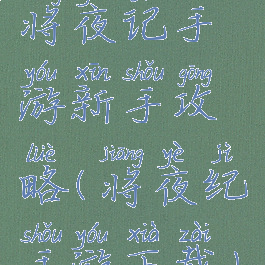 将夜记手
yóu xīn shǒu gōng
游新手攻
lüè jiāng yè jì
略(将夜纪
shǒu yóu xià zài
手游下载)